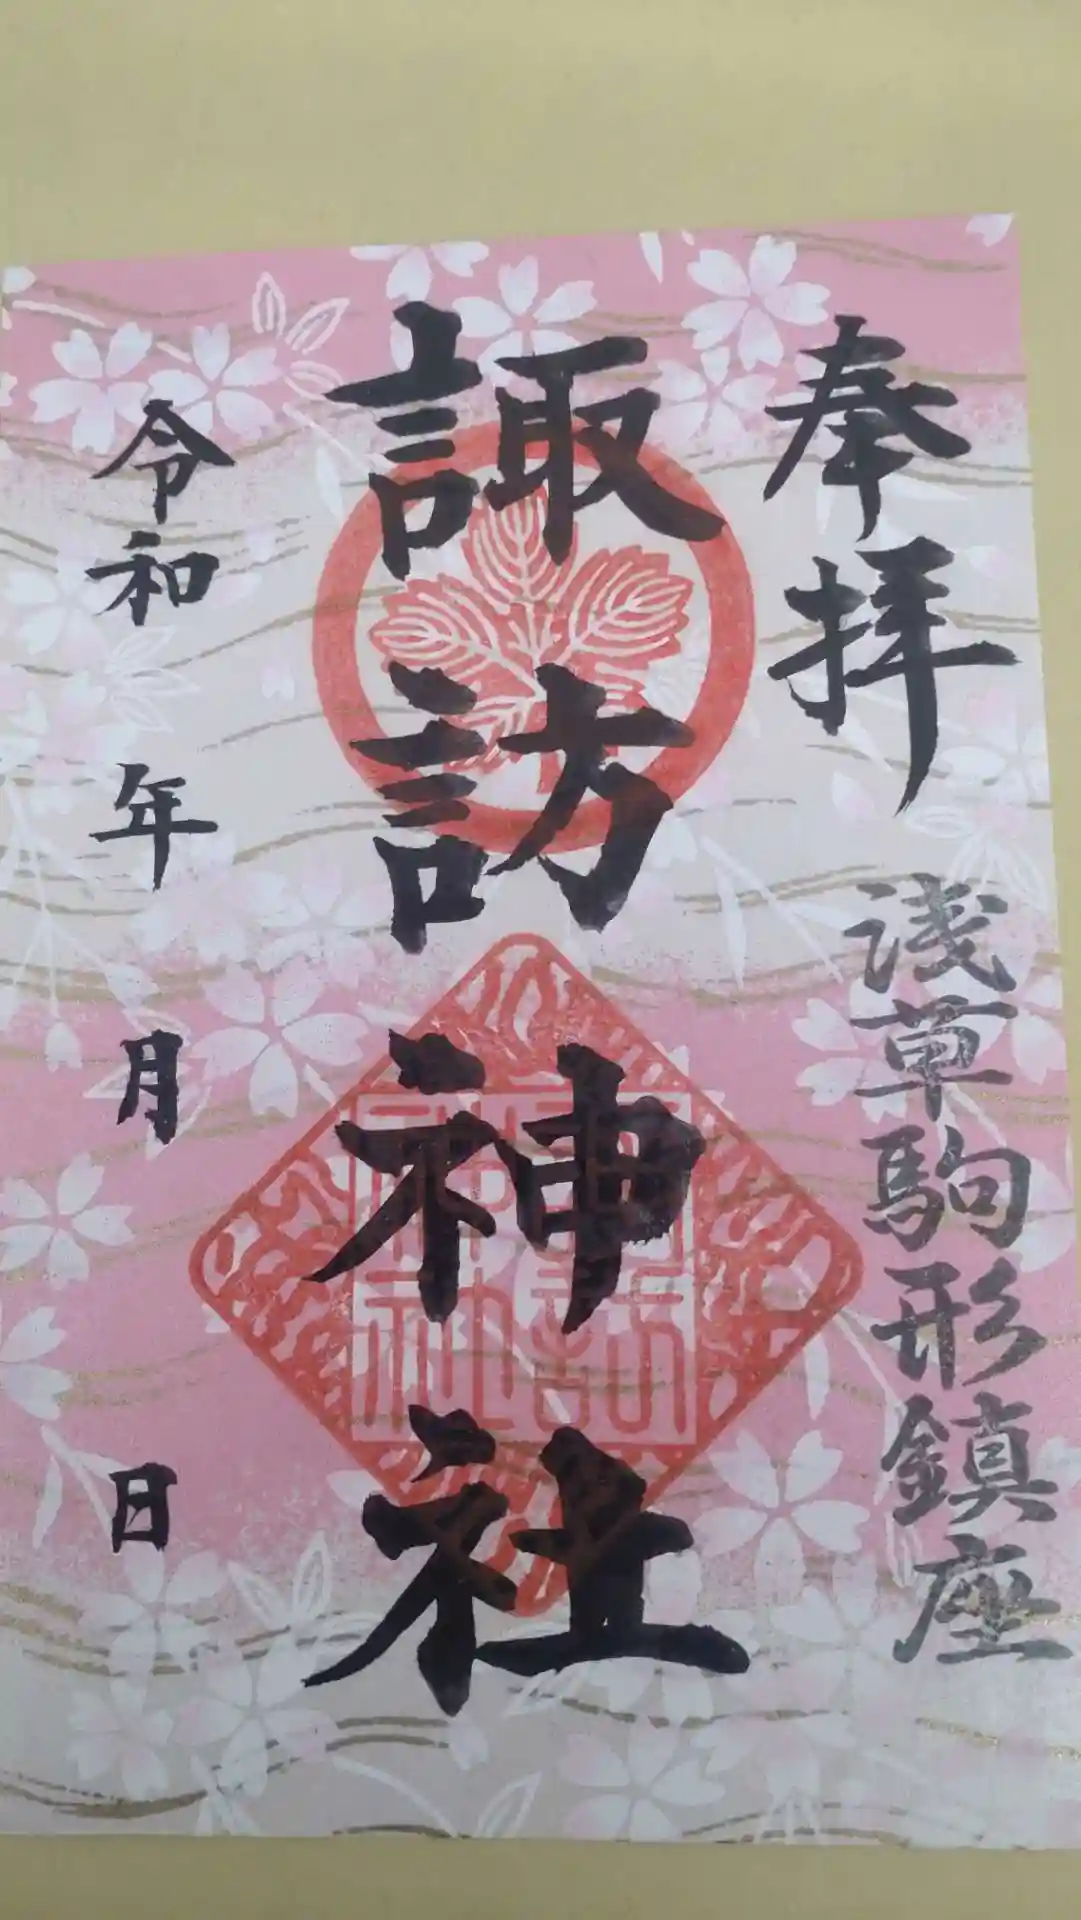 奉拝
浅草駒形鎮座
諏訪神社
諏訪
神社
令和 年 月 日